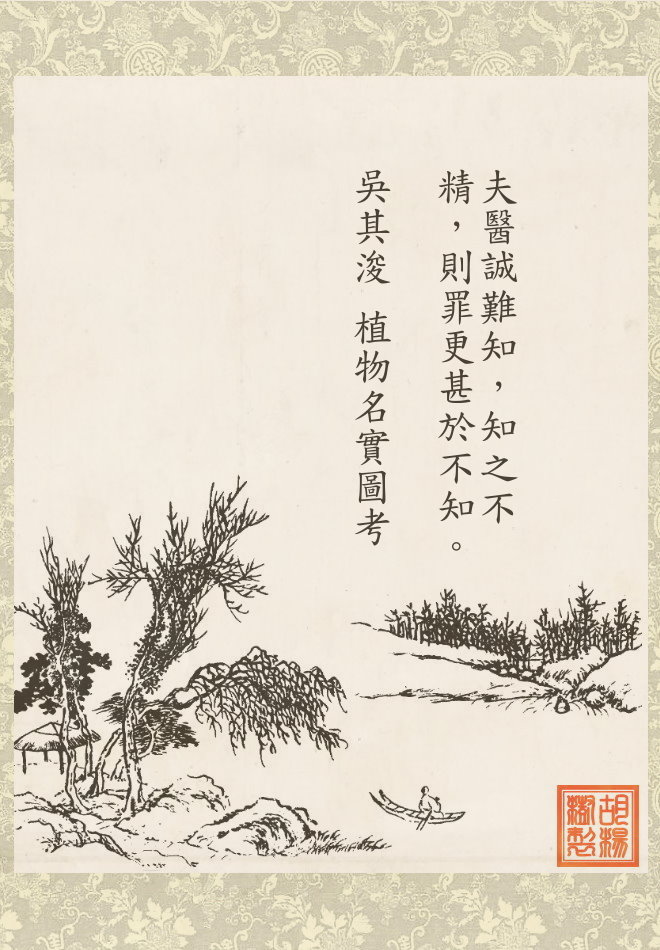 夫醫誠難知，知之不
精，則罪更甚於不知。
吳其浚 植物名實圖考
胡楊
製